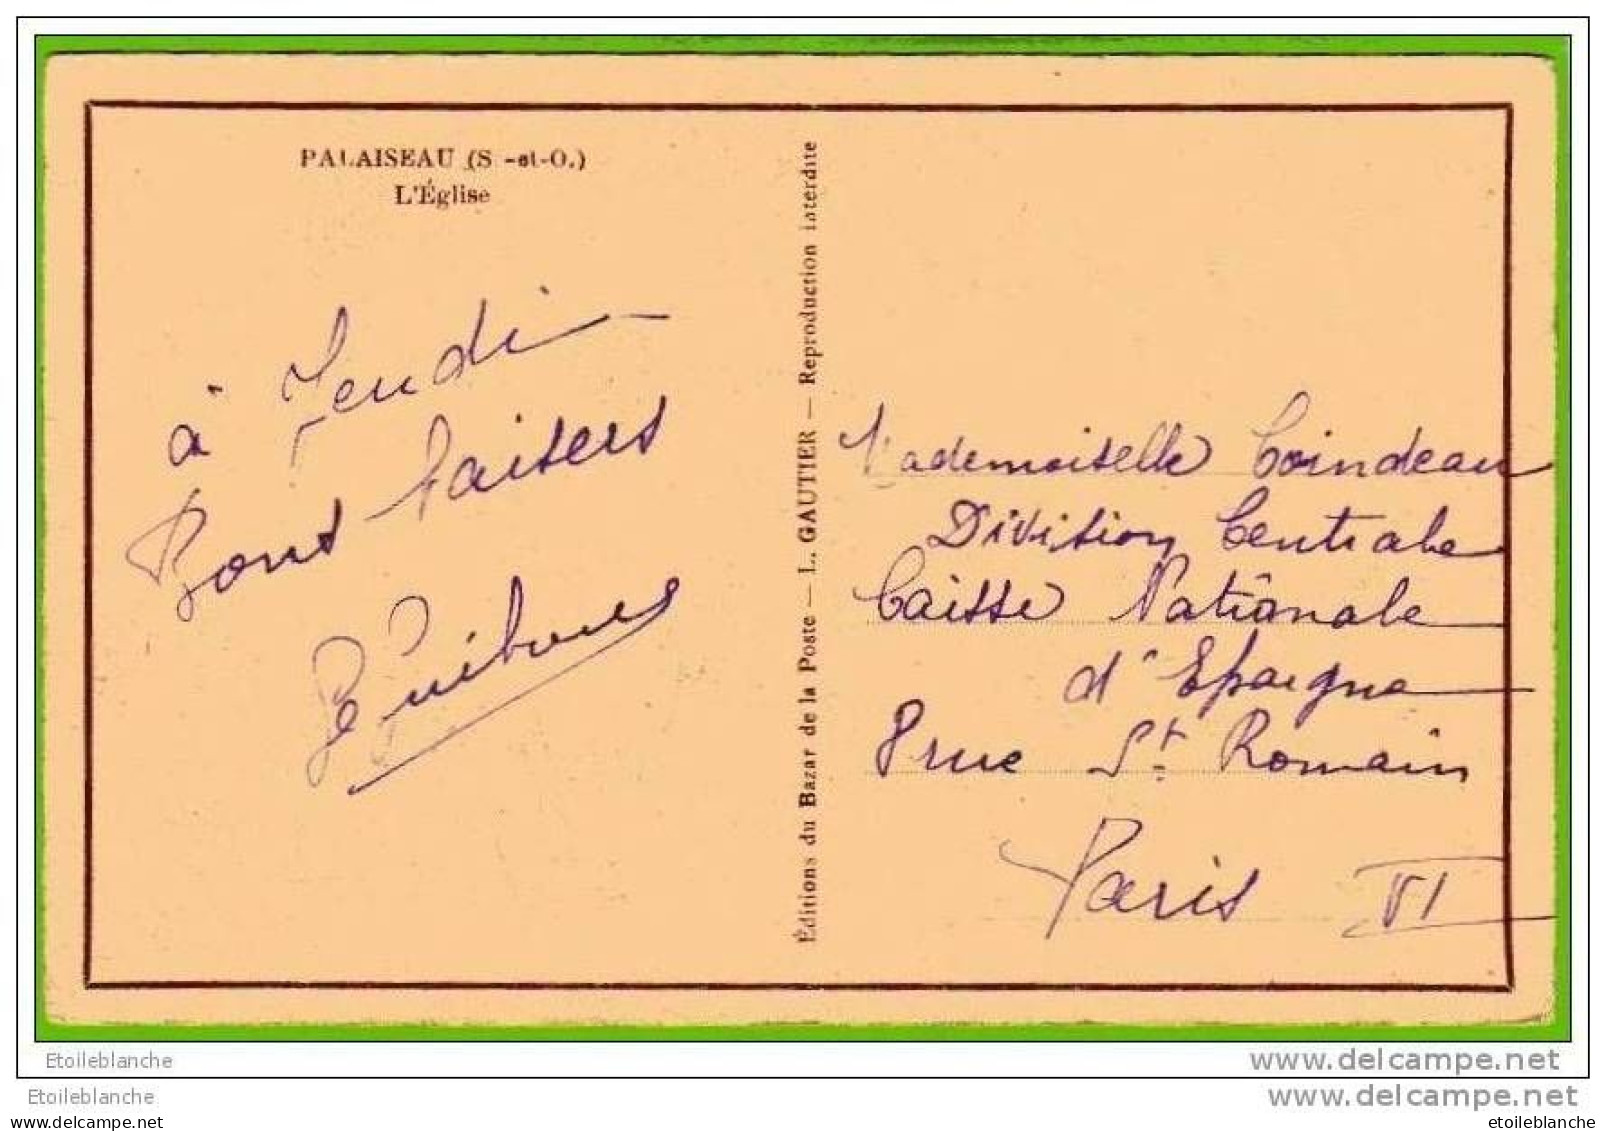 PALAISEAU (S-et-O.)
L'Église
à Jeudi
Bons baisers
Éditions du Bazar de la Poste — L. GAUTIER — Reproduction interdite
Mademoiselle Coindeau
Division Centrale
Caisse Nationale
d'Epargne
8 rue St Romain
Paris VI
Etoileblanche
www.delcampe.net
Etoileblanche
www.delcampe.net
www.delcampe.net
etoileblanche